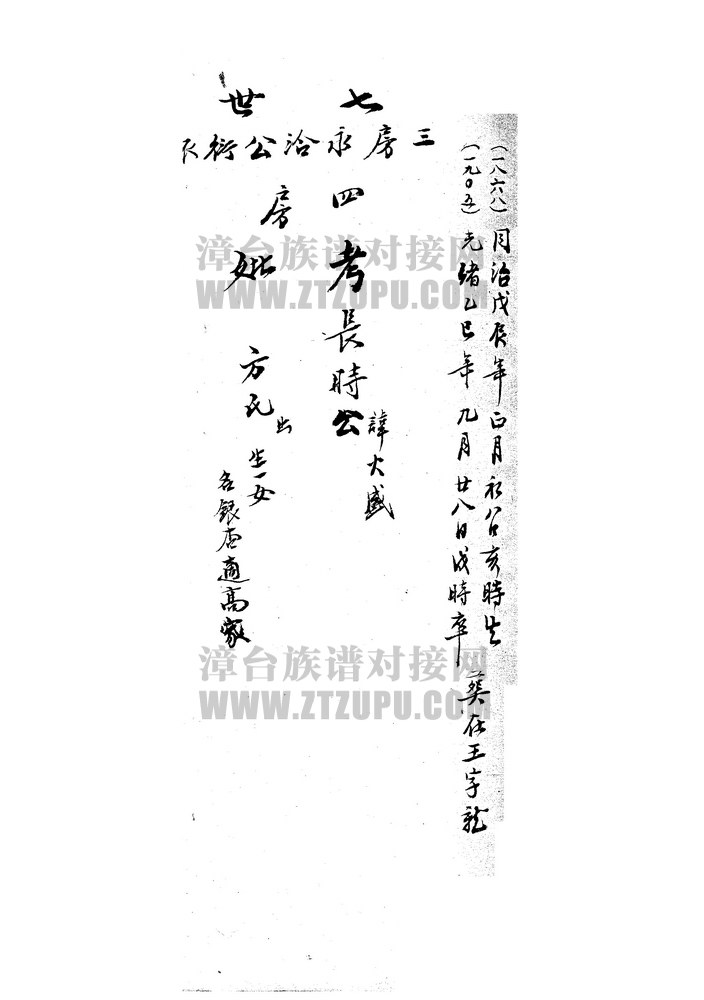 七世
三房永洽公衍派
(一八六八)同治戊辰年正月初八日亥時生
(一九〇五)光緒乙巳年九月廿八日戌時卒 葬在王字龍
四房
考長時公
諱火盛
妣 方氏
出
生一女
名銀杏適高家
漳台族谱对接网
WWW.ZTZUPU.COM
漳台族谱对接网
WWW.ZTZUPU.COM